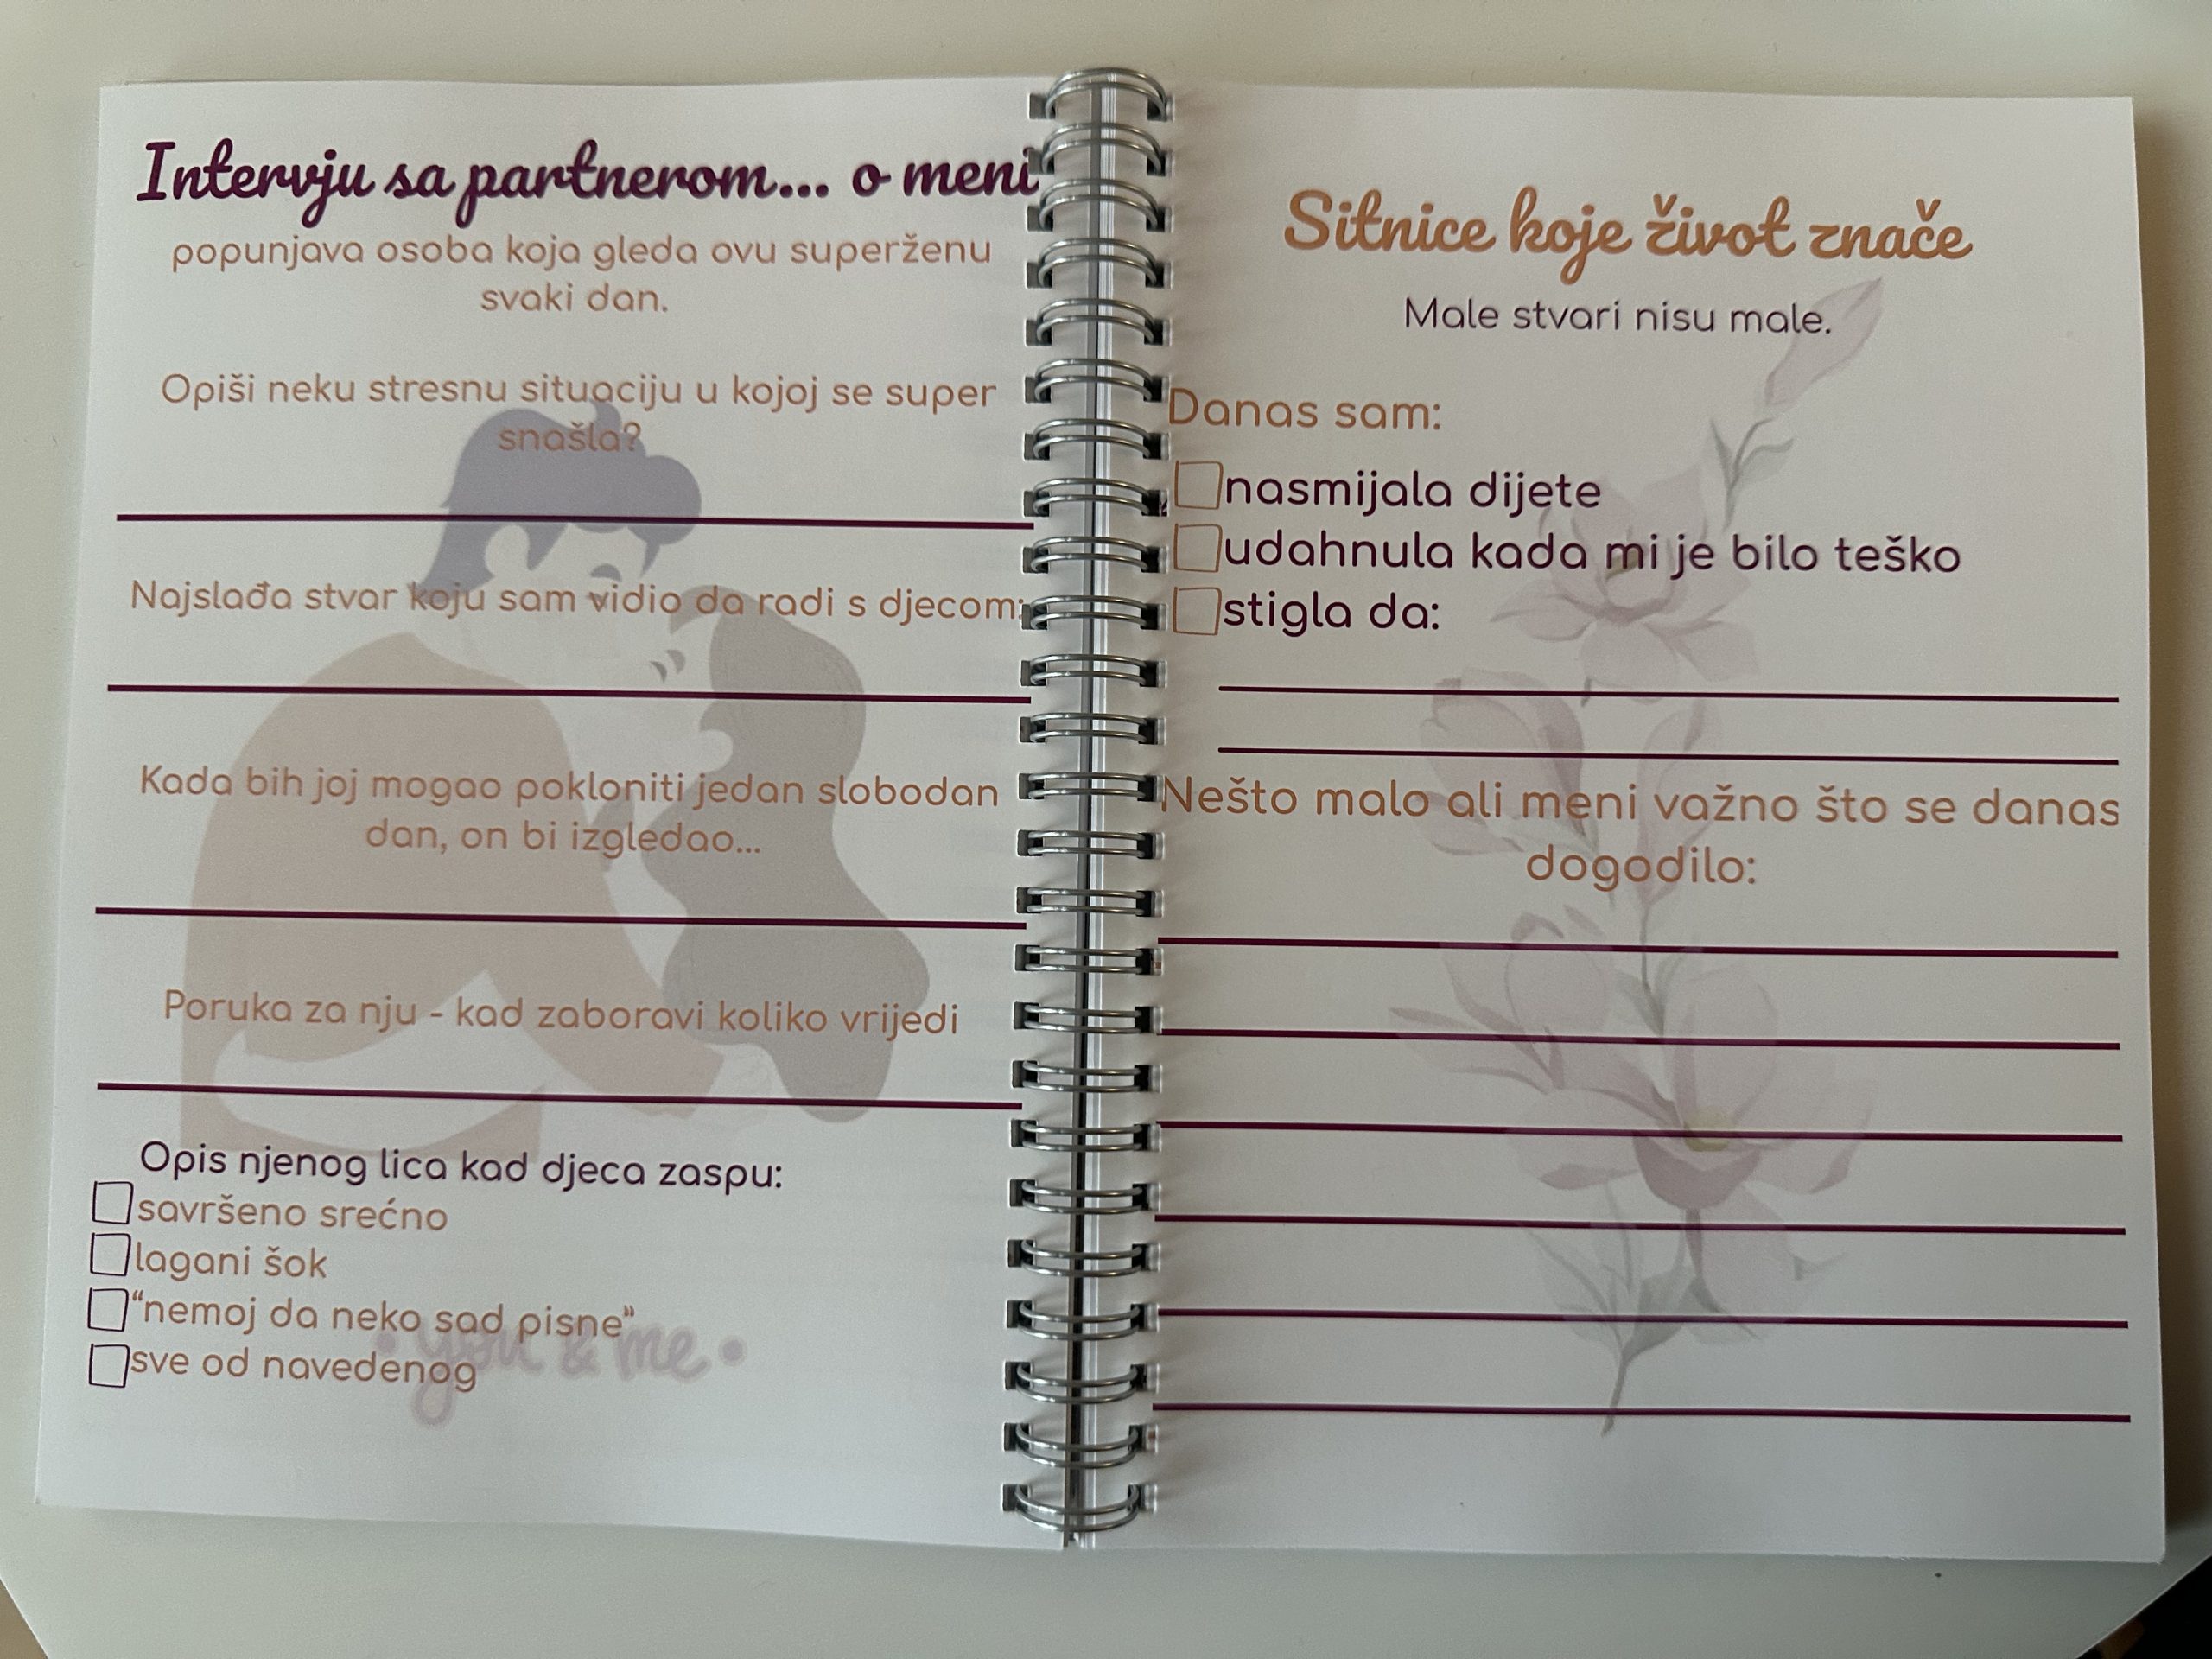 Intervju sa partnerom... o meni
popunjava osoba koja gleda ovu superženu
svaki dan.
Opiši neku stresnu situaciju u kojoj se super
snašla?
Najslađa stvar koju sam vidio da radi s djecom:
Kada bih joj mogao pokloniti jedan slobodan
dan, on bi izgledao...
Poruka za nju - kad zaboravi koliko vrijedi
Opis njenog lica kad djeca zaspu:
savršeno srećno
lagani šok
“nemoj da neko sad pisne”
sve od navedenog
• you & me •
Sitnice koje život znače
Male stvari nisu male.
Danas sam:
nasmijala dijete
udahnula kada mi je bilo teško
stigla da:
Nešto malo ali meni važno što se danas
dogodilo: